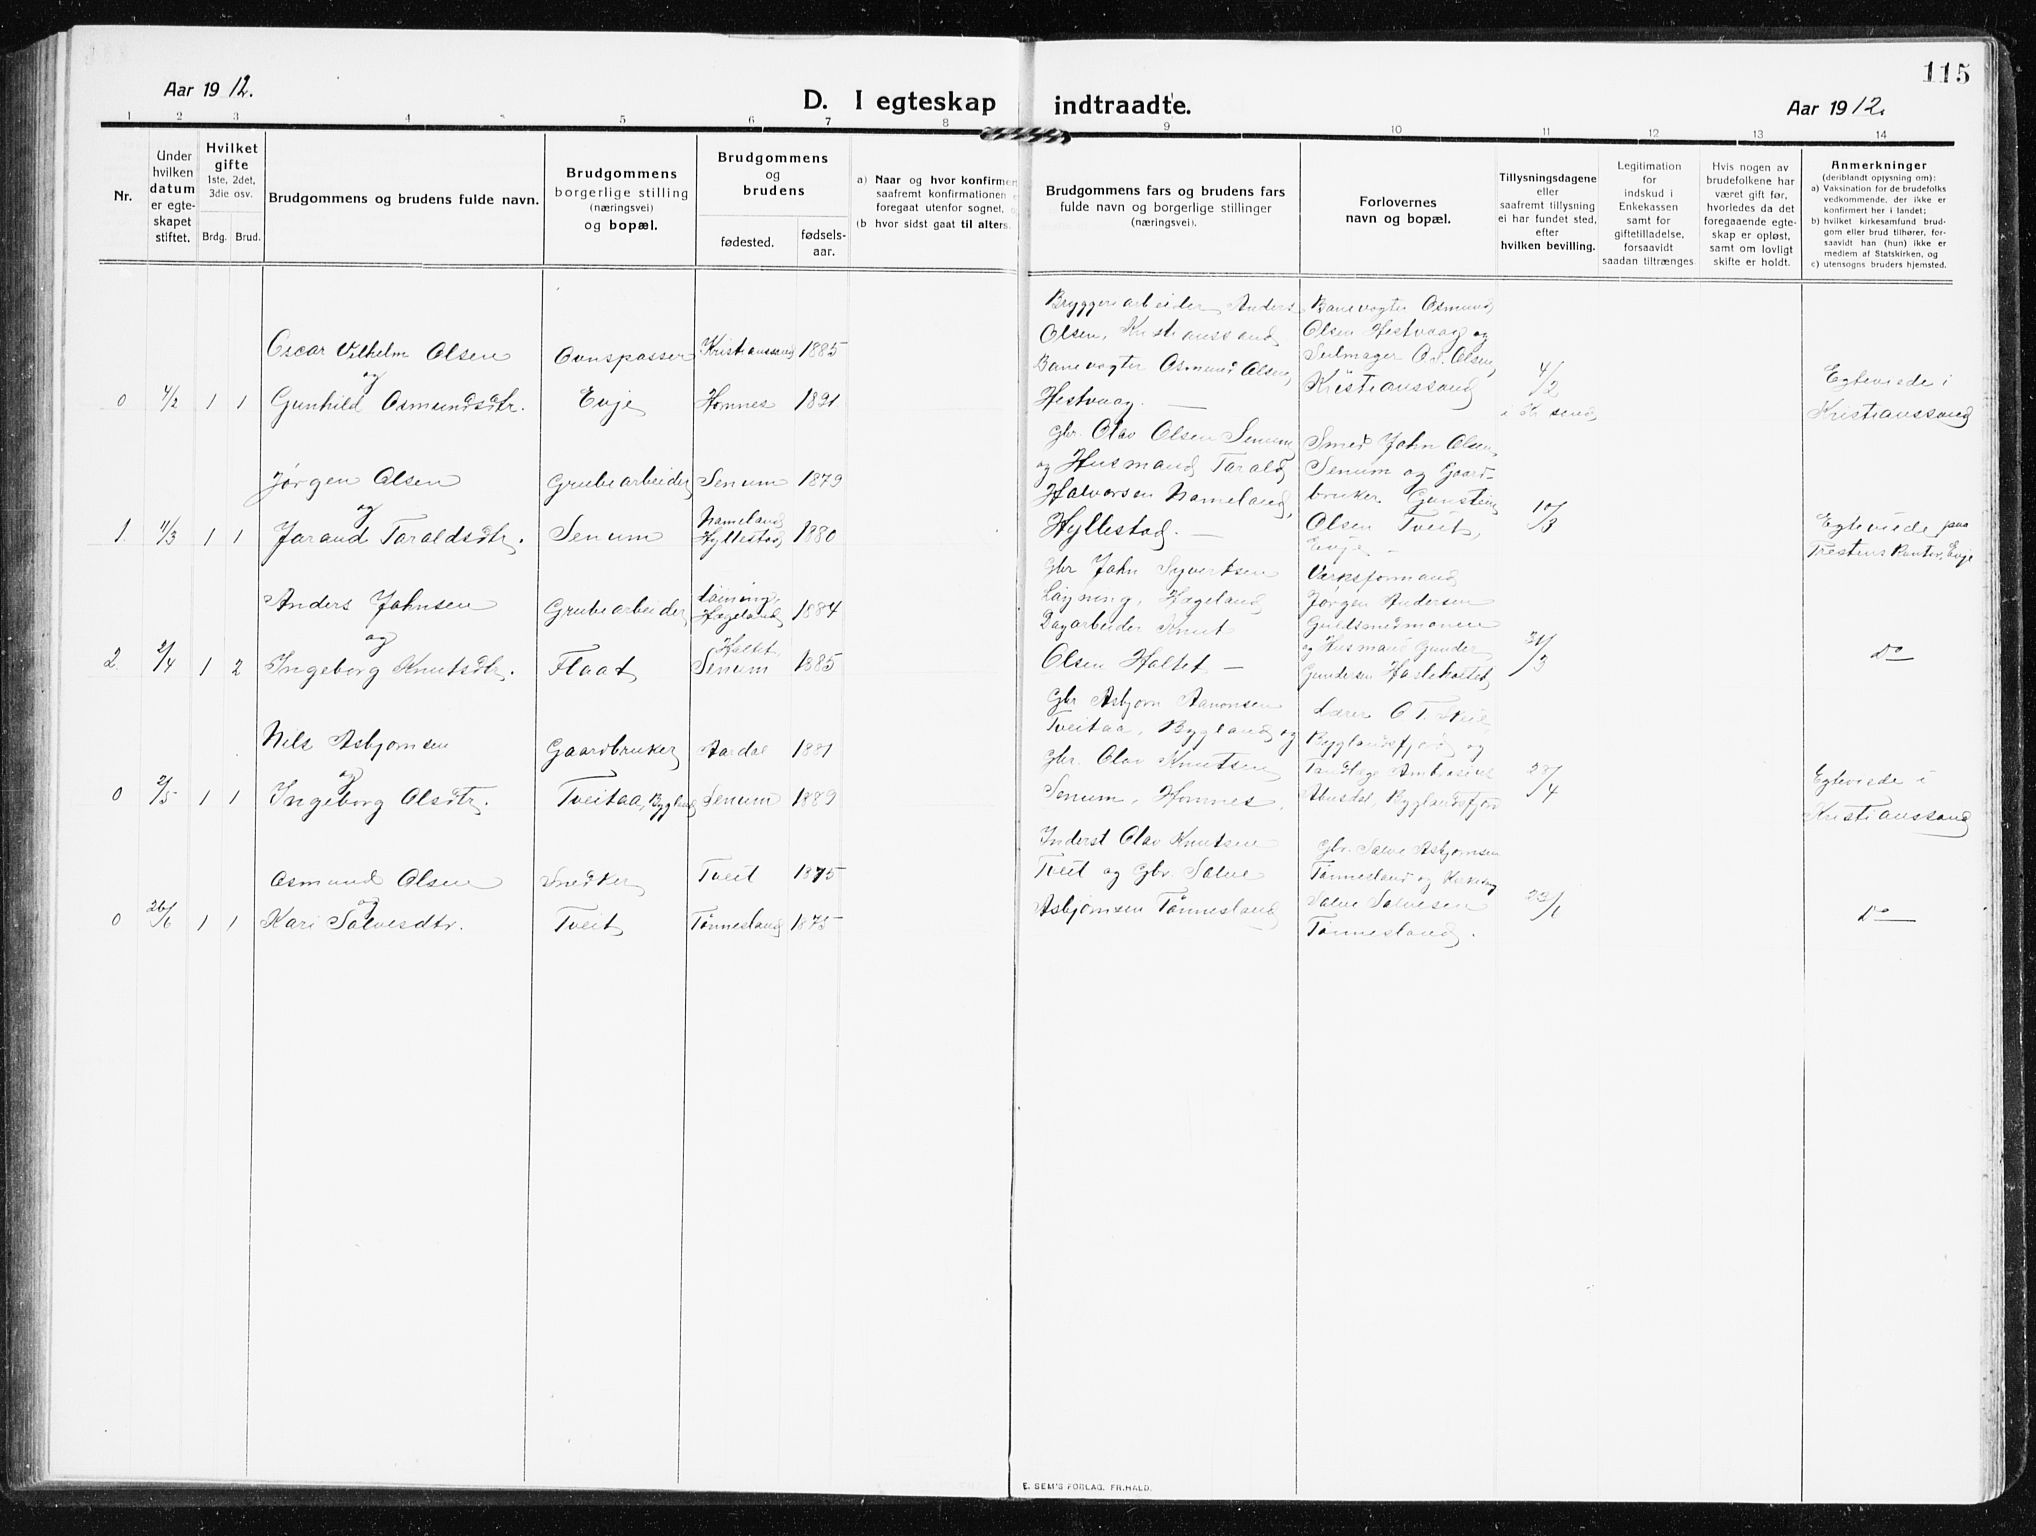 115
Aar 1912.
D. I egteskap indtraadte.
Aar 1912.
1 2 3 4 5 6 7 8 9 10 11 12 13 14
Nr.
Under hvilken datum er egteskapet stiftet.
Hvilket gifte 1ste, 2det, 3die osv.
Brdg. Brud.
Brudgommens og brudens fulde navn.
Brudgommens borgerlige stilling (næringsvei) og bopæl.
Brudgommens og brudens
fødested.
fødselsaar.
a) Naar og hvor konfirmer
saafremt konfirmationen
foregaat utenfor sognet,
(b hvor sidst gaat til alters.
Brudgommens fars og brudens fars
fulde navn og borgerlige stillinger
(næringsvei).
Forlovernes
navn og bopæl.
Tillysningsdagene
eller
saafremt tillysning
ei har fundet sted,
efter
hvilken bevilling.
Legitimation
for
indskud i
Enkekassen
samt for
giftetilladelse,
forsaavidt
saadan tiltrænges
Hvis nogen av
brudefolkene har
været gift før,
hvorledes da det
foregaaende egteskap er opløst,
samt om lovligt
skifte er holdt.
Anmerkninger
(deriblandt oplysning om):
a) Vaksination for de brudefolks
vedkommende, der ikke er
konfirmert her i landet;
b) hvilket kirkesamfund brudgom eller brud tilhører, forsaavidt han (hun) ikke er
medlem af Statskirken, og
c) utensogns bruders hjemsted.
0 4/2 1 1
Oscar Vilhelm Olsen
og
Gunhild Osmundsdtr.
Ovnspasser
Evje
Kristianssand 1885
Hornnes 1891
Bryggeriarbeider Anders
Olsen, Kristianssand
Banevogter Osmund Olsen,
Hestvaag. —
Banevogter Osmund
Olsen Hestvaag og
Seilmager O. Olsen,
Kristianssand
4/2
i Kr sand
Egteviede i
Kristianssand
1. 4/3 1 1
Jørgen Olsen
og
Jorand Taraldsdtr.
Grubearbeider
Senum
Senum 1879
Nomeland
Hyllestad 1880
Gbr. Olav Olsen Senum
og Husmand Tarald
Halvorsen Nomeland,
Hyllestad. —
Smed John Olsen
Senum og Gaard-
bruker Gunstein
Olsen Tveit,
Evje —
10/3
Egteviede paa
Trestens Kontor, Evje
2. 2/4 1 2
Anders Johnsen
og
Ingeborg Knutsdtr.
Grubearbeider
Flaat
Hægeland 1884
Haltet,
Senum 1885
Gbr John Syvertsen
Hægeland
Dagarbeider Knut
Olsen Haltet —
Verksformand
Jørgen Andersen
og Husmand Gunder
Gundersen
31/3
Do
0 2/5 1 1
Nils Asbjørnsen
og
Ingeborg Olsdtr.
Gaardbruker
Tveitaa, Bygland
Aardal 1881
Senum 1889
Gbr Asbjørn Aanonsen
Tveitaa, Bygland og
Gbr. Olav Knutsen
Senum, Hornnes.
Lærer O T
Byglandsfjord og
Tandlæge
Byglandsfjord
28/4
Egteviede i
Kristianssand
0 26/6 1 1
Osmund Olsen
og
Kari Salvesdtr.
Snedker
Tveit
Tveit 1875
Tønnesland 1875
Inderst Olav Knutsen
Tveit og Gbr. Salve
Asbjørnsen Tønnesland
Gbr. Salve Asbjørnsen
Tønnesland og
Salve Salvesen
Tønnesland.
23/6
Do
E. SEM'S FORLAG. FR.HALD.